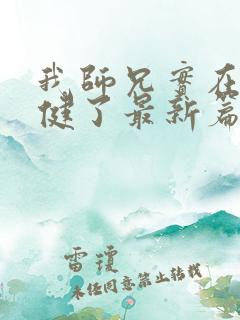 我师兄实在
健了最新篇
雷琼
未经同意禁止转载